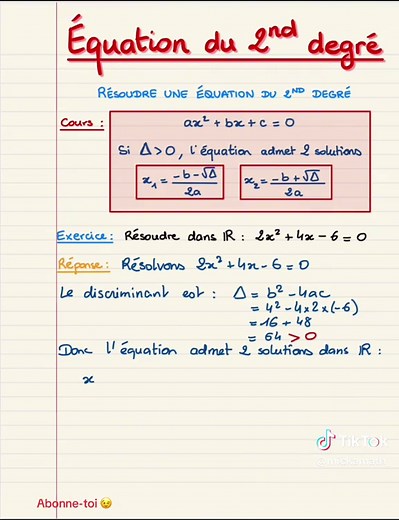 Équation du 2nd degré
RÉSOUDRE UNE ÉQUATION DU 2ND DEGRÉ
Cours : ax² + bx + c = 0
Si Δ > 0, l'équation admet 2 solutions
x₁ = (-b - √Δ) / 2a    x₂ = (-b + √Δ) / 2a
Exercice : Résoudre dans ℝ : 2x² + 4x - 6 = 0
Réponse : Résolvons 2x² + 4x - 6 = 0
Le discriminant est : Δ = b² - 4ac
= 4² - 4 × 2 × (-6)
= 16 + 48
= 64 > 0
Donc l'équation admet 2 solutions dans ℝ :
x
TikTok
Abonne-toi 😉